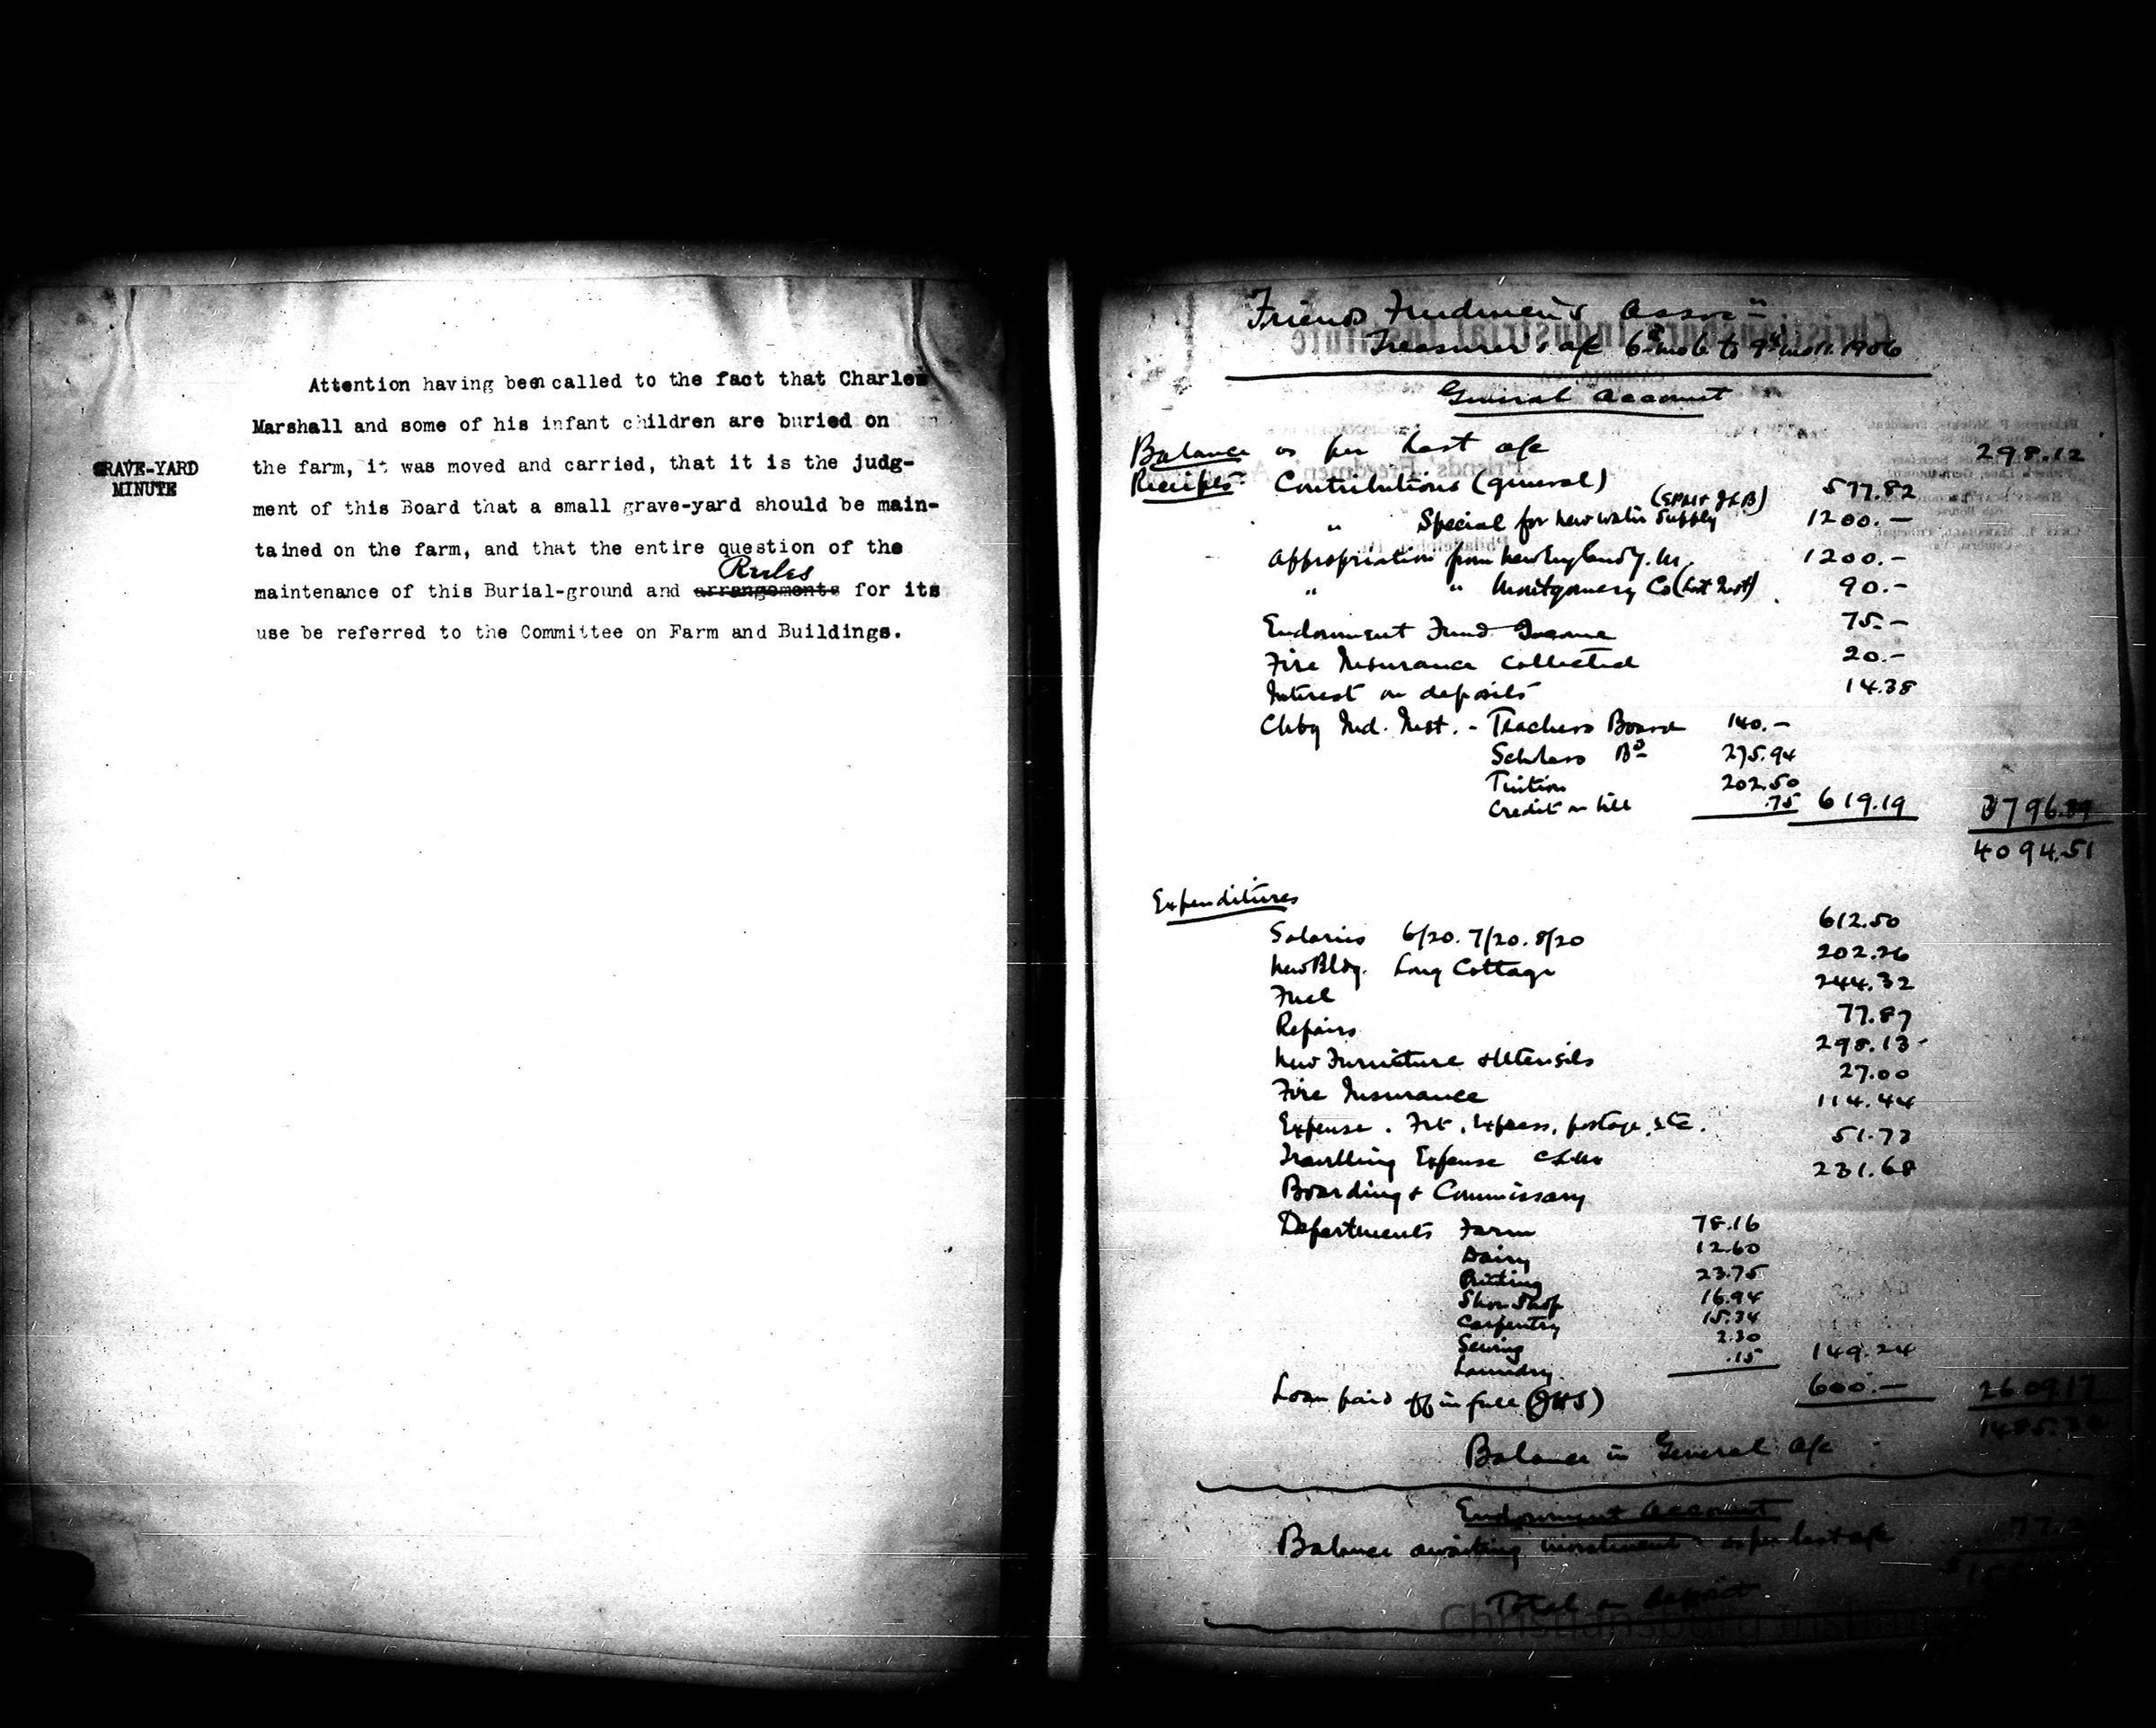 Attention having been called to the fact that Charles
Marshall and some of his infant children are buried on
GRAVE-YARD
MINUTE
the farm, it was moved and carried, that it is the judg-
ment of this Board that a small grave-yard should be main-
tained on the farm, and that the entire question of the
Rules
maintenance of this Burial-ground and arrangements for its
use be referred to the Committee on Farm and Buildings.
Friends Freedmen's Assocn
Treasurer's a/c 6th mo 6 to 9th mo 11. 1906
General Account
Balance as per last a/c 298.12
Receipts Contributions (general) 577.82
" Special for new water supply (EPM + JLB) 1200.—
Appropriation from New England Y.M. 1200.—
" " Montgomery Co 90.—
Endowment Fund Income 75.—
Fire Insurance collected 20.—
Interest on deposits 14.38
Chbg Ind. Inst. - Teachers Board 140.—
Scholars Bd 275.94
Tuition 202.50
Credit on bill .75 619.19 3796.39
4094.51
Expenditures
Salaries 6/20. 7/20. 8/20 612.50
New Bldg. Long Cottage 202.26
Fuel 244.32
Repairs 77.87
New Furniture & Utensils 298.13
Fire Insurance 27.00
Expense. Frt, Express, postage, etc. 114.44
Travelling Expense CLM 51.73
Boarding & Commissary 231.68
Departments Farm 78.16
Dairy 12.60
Printing 23.75
Shoe Shop 16.94
Carpentry 15.34
Sewing 2.30
Laundry .15 149.24
Loan paid off in full (JHS) 600.— 2609.17
Balance in General a/c 1485.34
Endowment Account
Balance awaiting investment as per last a/c
Total on deposit
Christiansburg Institute